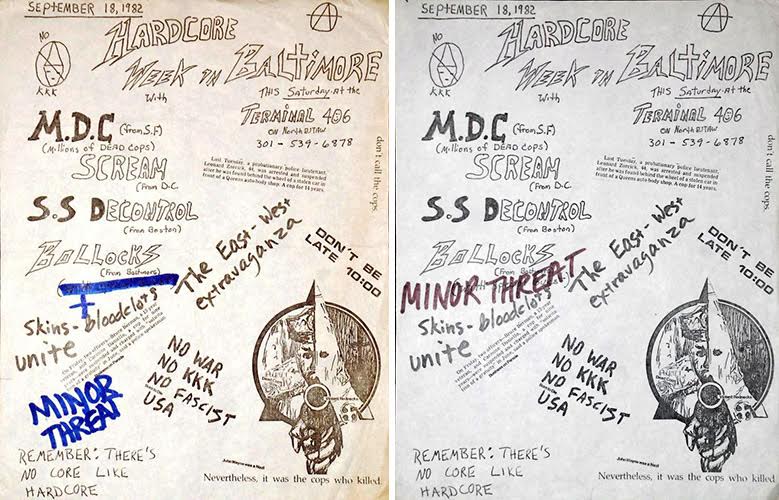 SEPTEMBER 18, 1982
HARDCORE
NO
KKK
WEEK IN BALTIMORE
With
THIS SATURDAY At the
TERMINAL 406
ON North
301-539-6878
M.D.C (from S.F)
(Millions of DEAD COPS)
SCREAM
(From D.C.)
Last Tuesday, a probationary police lieutenant,
Leonard Zorcick, 44, was arrested and suspended
after he was found behind the wheel of a stolen car in
front of a Queens auto-body shop. A cop for 14 years.
don't call the cops.
S.S DECONTROL
(From Boston)
BOLLOCKS
(From Baltimore)
The East-West
extravaganza
DON'T BE
LATE 10:00
+
Skins-bloodclots
unite
NO WAR
NO KKK
NO FASCIST
USA
MINOR
THREAT
REMEMBER: THERE'S
NO CORE LIKE
HARDCORE
John Wayne was a Nazi
Nevertheless, it was the cops who killed.
SEPTEMBER 18, 1982
HARDCORE
NO
KKK
WEEK IN BALTIMORE
With
THIS SATURDAY At the
TERMINAL 406
ON North
301-539-6878
M.D.C (from S.F)
(Millions of DEAD COPS)
SCREAM
(From D.C.)
Last Tuesday, a probationary police lieutenant,
Leonard Zorcick, 44, was arrested and suspended
after he was found behind the wheel of a stolen car in
front of a Queens auto-body shop. A cop for 14 years.
don't call the cops.
S.S DECONTROL
(From Boston)
BOLLOCKS
(From Baltimore)
MINOR THREAT
The East-West
extravaganza
DON'T BE
LATE 10:00
Skins-bloodclots
unite
NO WAR
NO KKK
NO FASCIST
USA
REMEMBER: THERE'S
NO CORE LIKE
HARDCORE
John Wayne was a Nazi
Nevertheless, it was the cops who killed